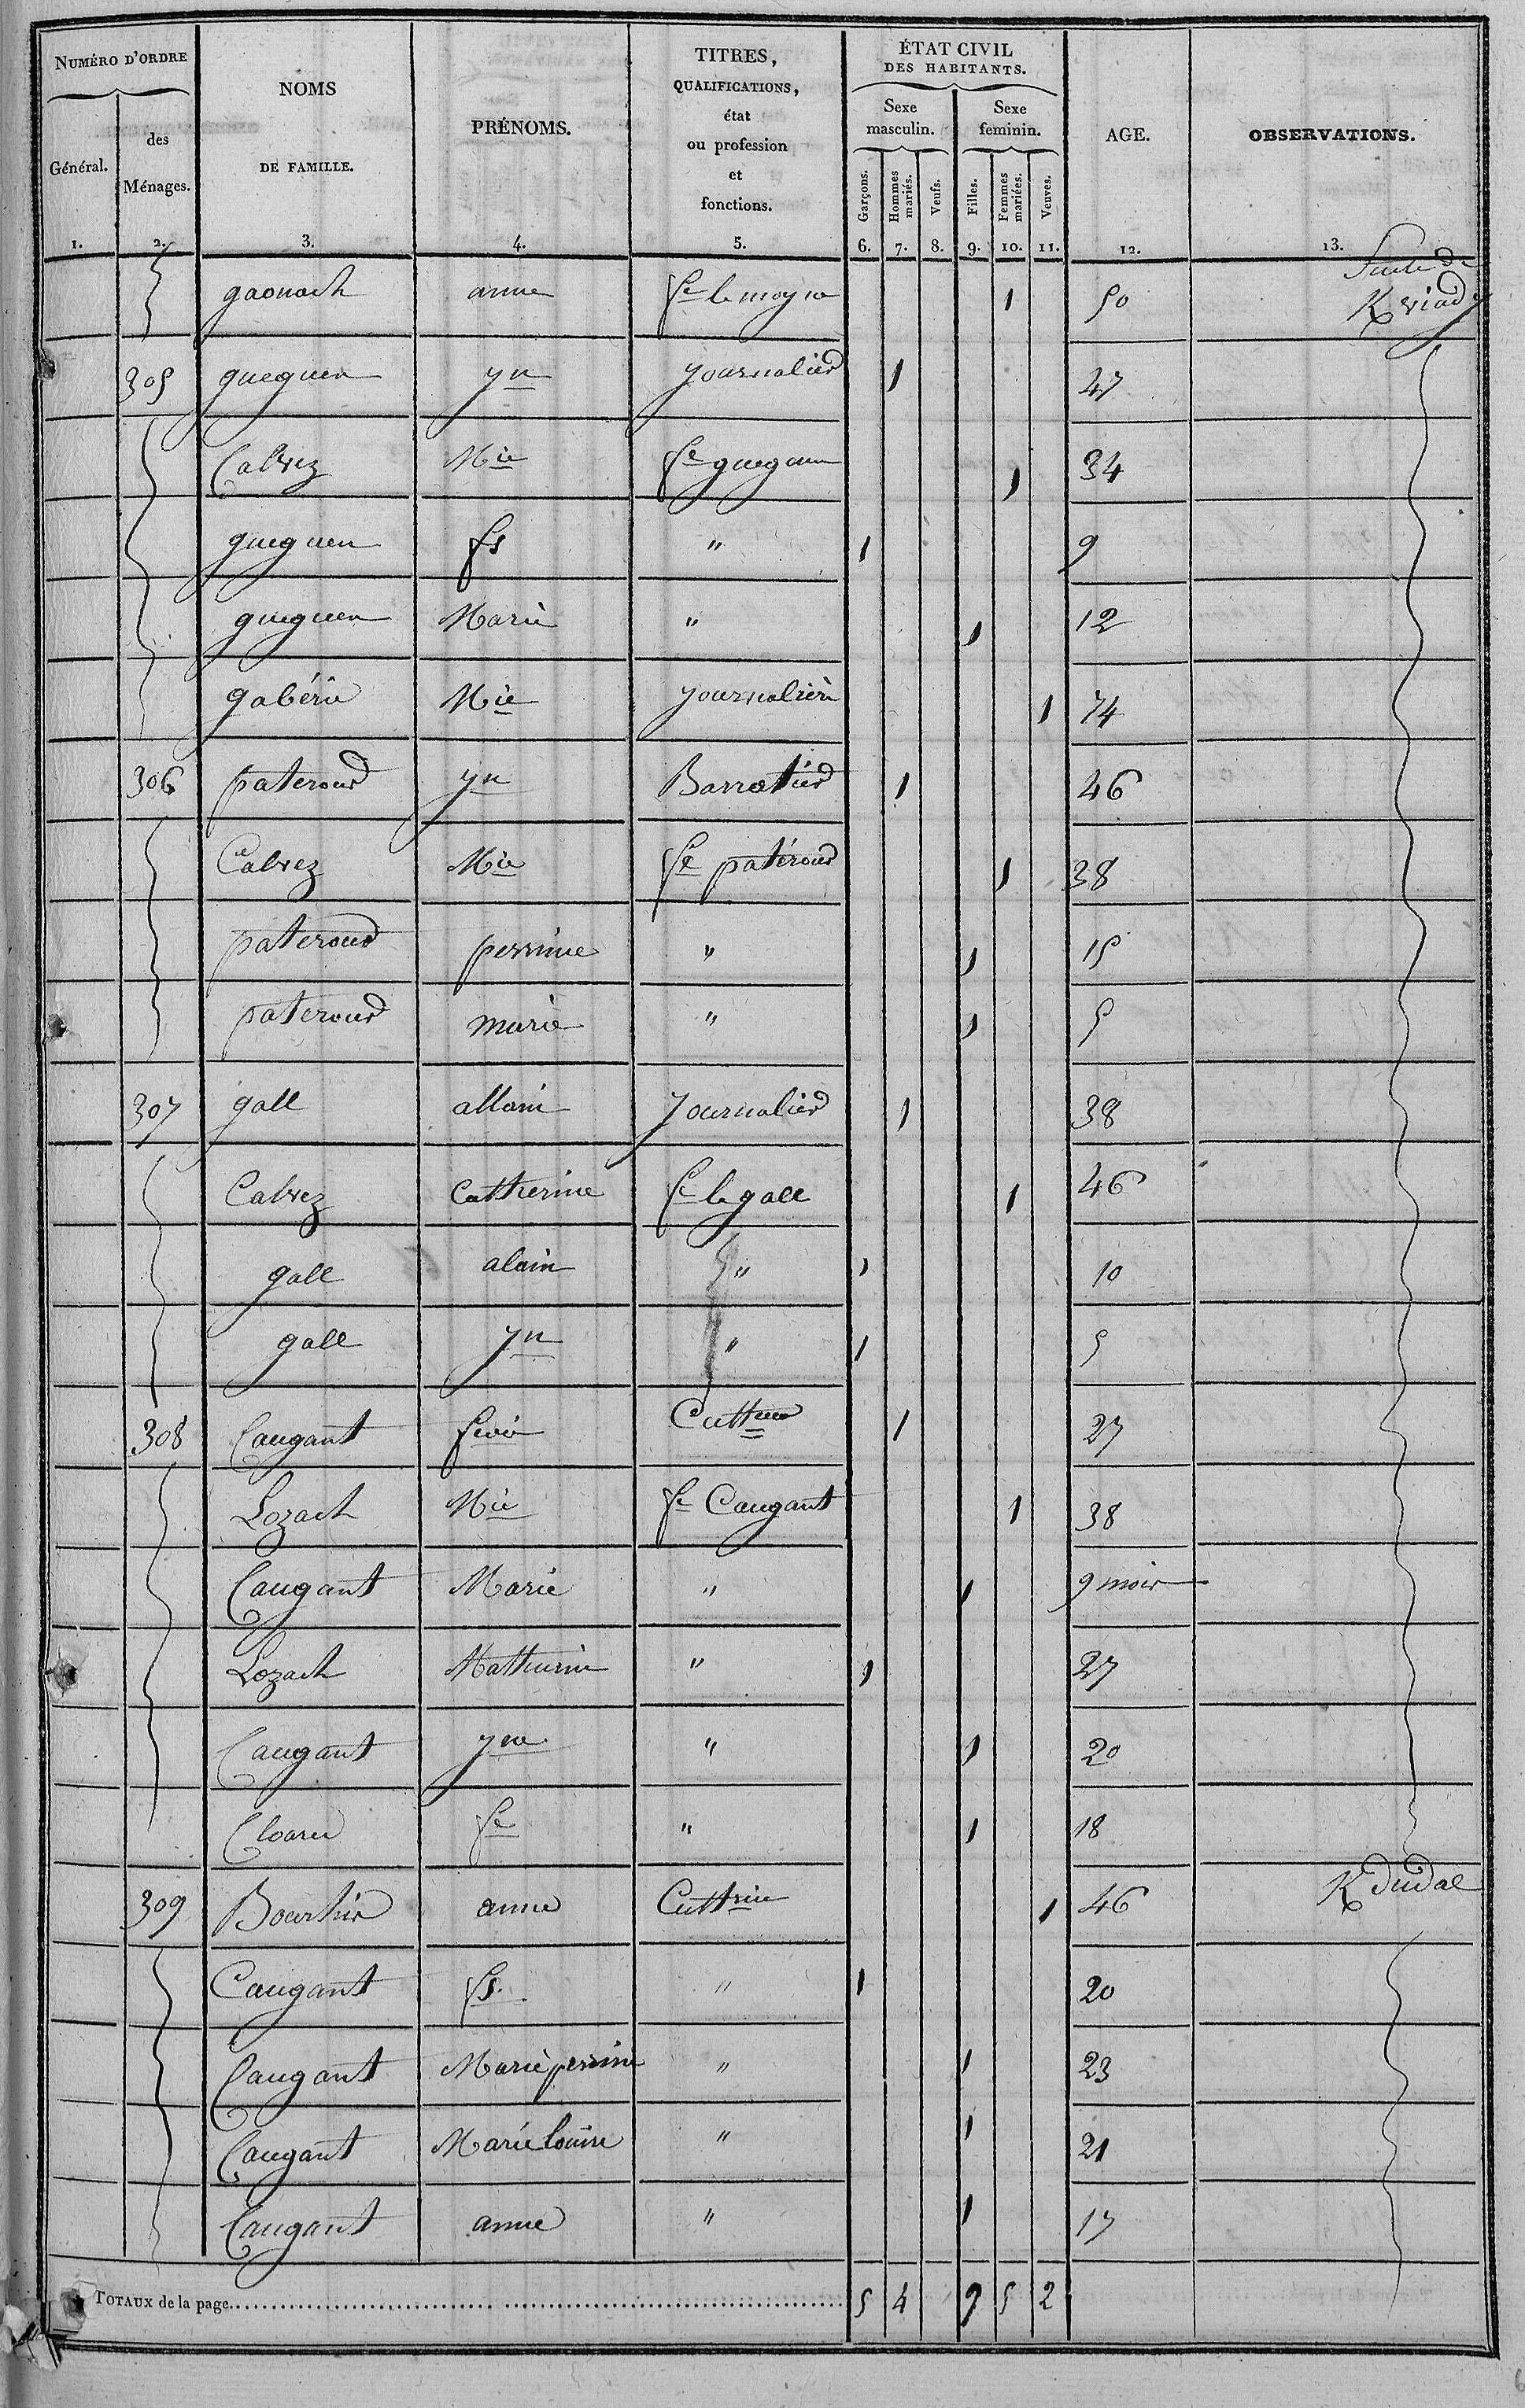 NUMÉRO D'ORDRE
Général.
des Ménages.
NOMS DE FAMILLE.
PRÉNOMS.
TITRES, QUALIFICATIONS, état ou profession et fonctions.
ÉTAT CIVIL DES HABITANTS.
Sexe masculin.
Sexe feminin.
Garçons.
Hommes mariés.
Veufs.
Filles.
Femmes mariées.
Veuves.
AGE.
OBSERVATIONS.
1. 2. 3. 4. 5. 6. 7. 8. 9. 10. 11. 12. 13.
gaonach anne fe le moyne 1 50 Suite de Kviady
305 gueguen yn journalier 1 47
Calvez Mie fe gueguen 1 34
gueguen fs " 1 9
gueguen Marie " 1 12
gabérie Mie journalière 1 74
306 paterour yn Barratier 1 46
Calvez Mie fe patérour 1 38
paterour perrine " 1 15
paterour marie " 1 5
307 gall allain journalier 1 38
Calvez Catherine fe le gall 1 46
gall alain " 1 10
gall yn " 1 5
308 Caugant 1 27
Lozach Mie fe Caugant 1 38
Caugant Marie " 1 9 mois
Lozach Mathurin " 1 27
Caugant yne " 1 20
Cloarec fe " 1 18
309 Bourhis anne Cultrice 1 46 Kdudal
Caugant fs. " 1 20
Caugant Marie perrine " 1 23
Caugant Marie louise " 1 21
Caugant anne " 1 17
TOTAUX de la page 5 4 9 5 2